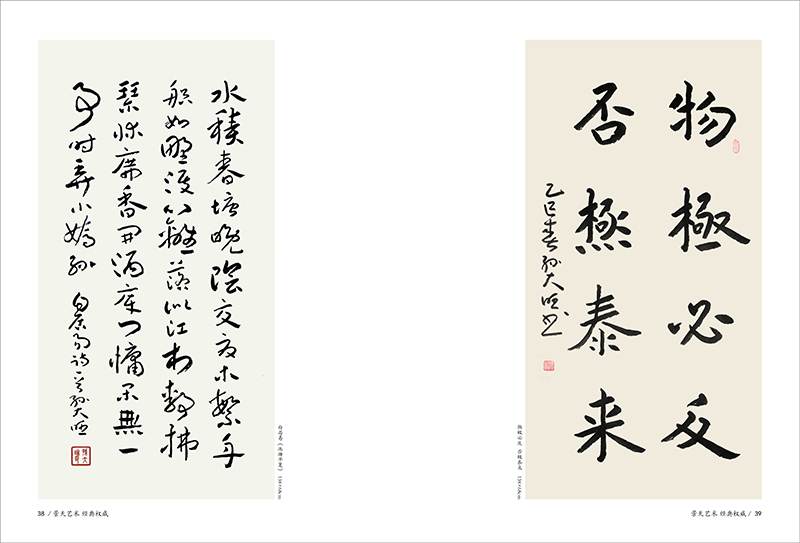 水積春塘晚陰交夏木繁舟
船如野渡籬落似江村靜拂
琴床席香開酒庫門慵閑無一
事時弄小嬌孫
白居易詩一首孫大
白居易《池塘早夏》138×68cm
38 / 景天艺术 经典权威
物極必反
否極泰来
乙巳春孫大书
物极必反 否极泰来 138×68cm
景天艺术 经典权威 / 39